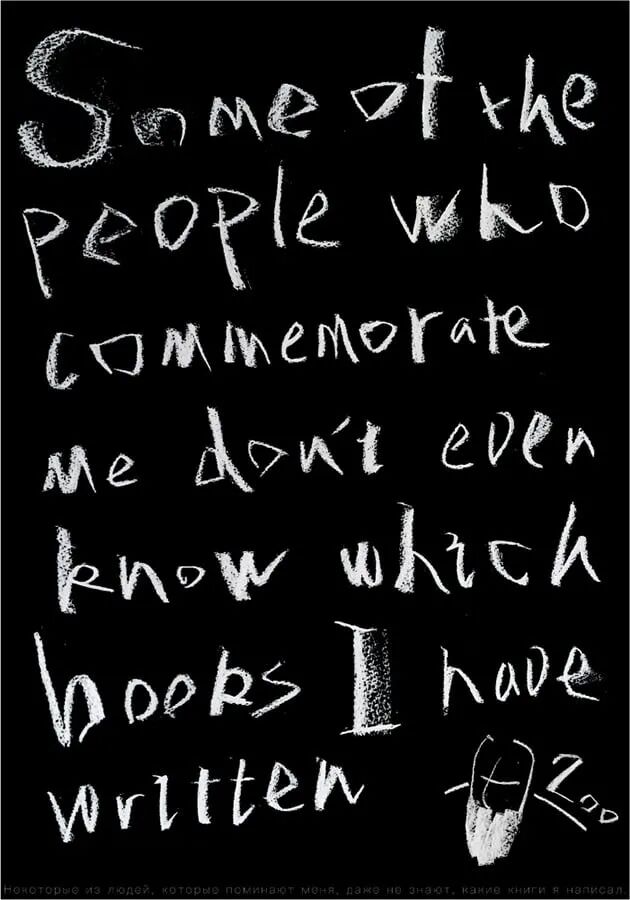 Some of the
people who
commemorate
me don't even
know which
books I have
written 200
Некоторые из людей, которые поминают меня, даже не знают, какие книги я написал.